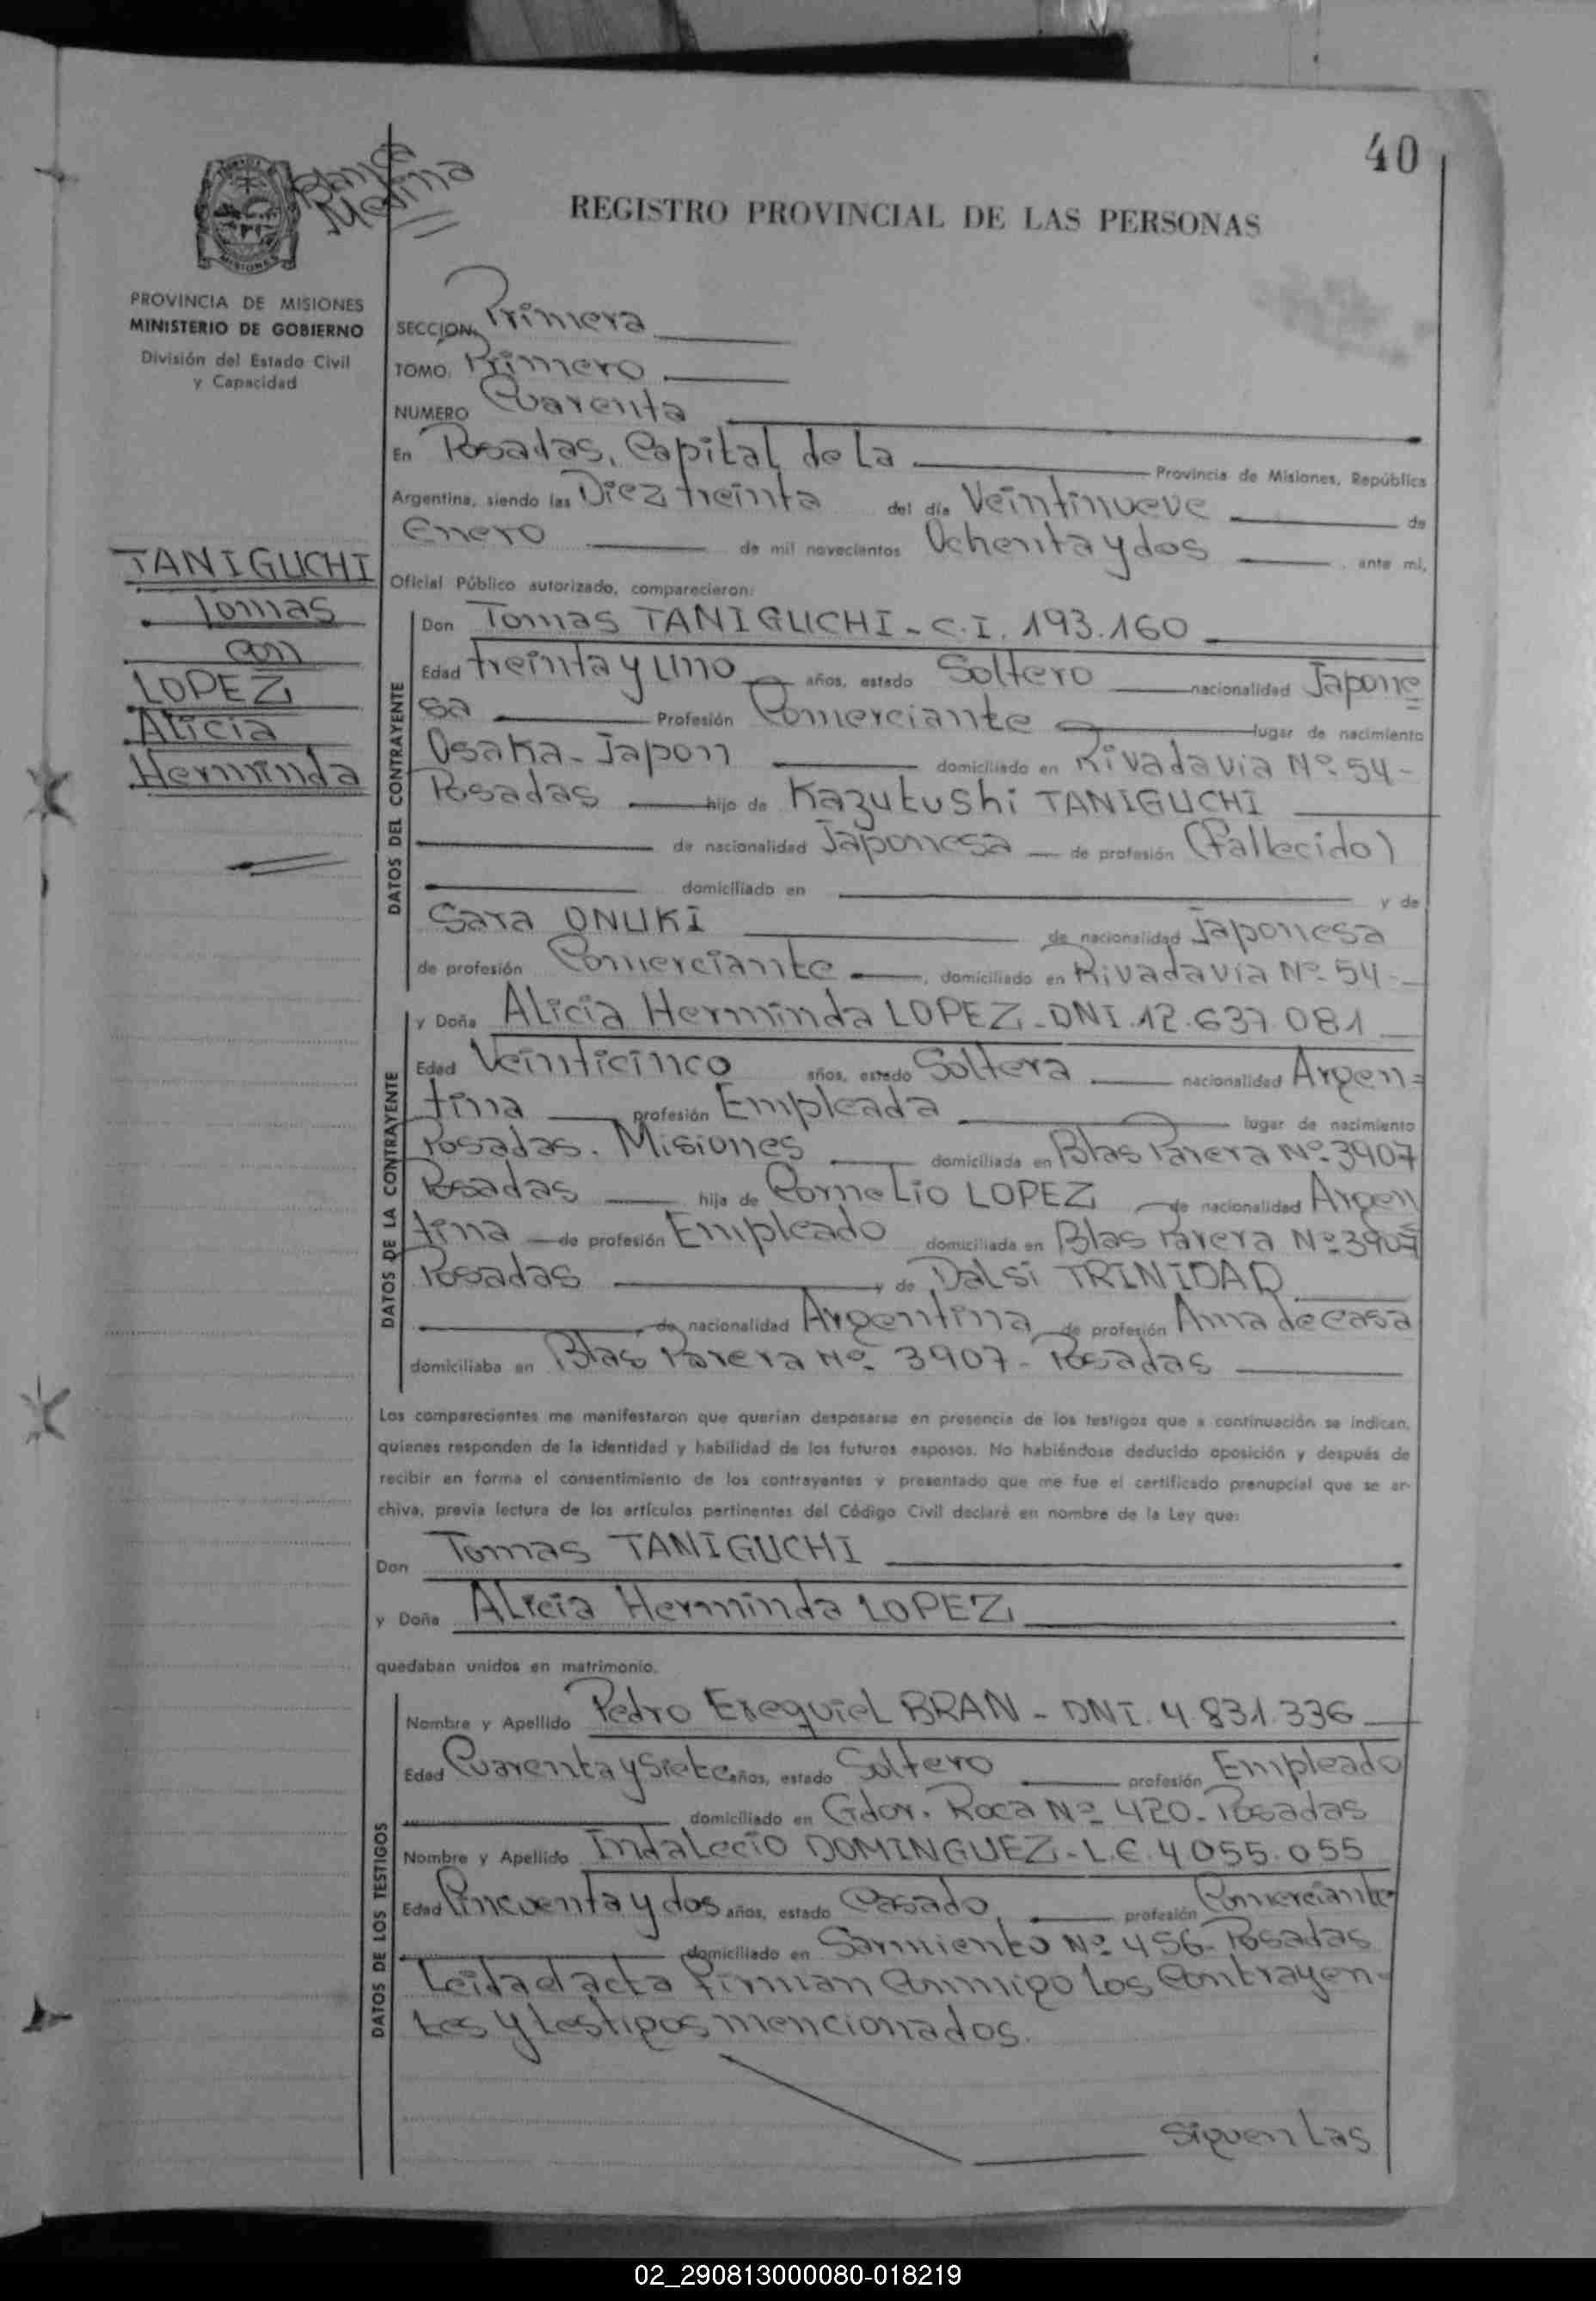 40
Blanca
Molina
REGISTRO PROVINCIAL DE LAS PERSONAS
MISIONES
PROVINCIA DE MISIONES
MINISTERIO DE GOBIERNO
División del Estado Civil
y Capacidad
TANIGUCHI
Tomas
con
LOPEZ
Alicia
Herminda
SECCION, Primera
TOMO, Primero
NUMERO Cuarenta
En Posadas, Capital de la Provincia de Misiones, República
Argentina, siendo las Diez treinta del día Veintinueve de
Enero de mil novecientos Ochenta y dos, ante mí,
Oficial Público autorizado, comparecieron:
DATOS DEL CONTRAYENTE
Don Tomas TANIGUCHI - C.I. 193.160
Edad treinta y uno años, estado Soltero nacionalidad Japone
sa Profesión Comerciante lugar de nacimiento
Osaka - Japon domiciliado en Rivadavia Nº 54 -
Posadas hijo de Kazutushi TANIGUCHI
de nacionalidad Japonesa de profesión (Fallecido)
domiciliado en y de
Sara ONUKI de nacionalidad Japonesa
de profesión Comerciante, domiciliado en Rivadavia Nº 54 -
DATOS DE LA CONTRAYENTE
y Doña Alicia Herminda LOPEZ - DNI. 12.637.081
Edad Veinticinco años, estado Soltera nacionalidad Argen=
tina profesión Empleada lugar de nacimiento
Posadas. Misiones domiciliada en Blas Parera Nº 3907
Posadas hija de Cornelio LOPEZ de nacionalidad Argen
tina de profesión Empleado domiciliada en Blas Parera Nº 3907
Posadas y de Dalsi TRINIDAD
de nacionalidad Argentina de profesión Ama de casa
domiciliaba en Blas Parera Nº 3907 - Posadas
Los comparecientes me manifestaron que querían desposarse en presencia de los testigos que a continuación se indican,
quienes responden de la identidad y habilidad de los futuros esposos. No habiéndose deducido oposición y después de
recibir en forma el consentimiento de los contrayentes y presentado que me fue el certificado prenupcial que se ar-
chiva, previa lectura de los artículos pertinentes del Código Civil declaré en nombre de la Ley que:
Don Tomas TANIGUCHI
y Doña Alicia Herminda LOPEZ
quedaban unidos en matrimonio.
DATOS DE LOS TESTIGOS
Nombre y Apellido Pedro Exequiel BRAN - DNI. 4.831.336
Edad Cuarenta y siete años, estado Soltero profesión Empleado
domiciliado en Gdor. Roca Nº 420 - Posadas
Nombre y Apellido Indalecio DOMINGUEZ - L.E. 4055.055
Edad Cincuenta y dos años, estado Casado, profesión Comerciante
domiciliado en Sarmiento Nº 456 - Posadas
Leida el acta firman conmigo los contrayen-
tes y testigos mencionados.
Siguen las
02_290813000080-018219